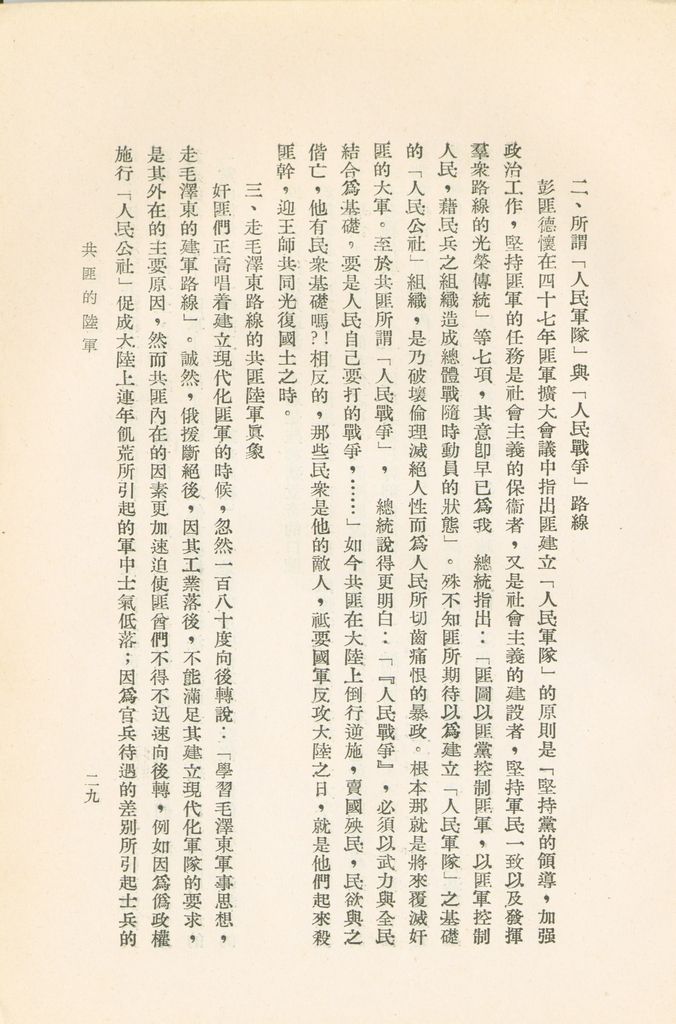 二、所謂「人民軍隊」與「人民戰爭」路線
彭匪德懷在四十七年匪軍擴大會議中指出匪建立「人民軍隊」的原則是『堅持黨的領導，加强
政治工作，堅持匪軍的任務是社會主義的保衞者，又是社會主義的建設者，堅持軍民一致以及發揮
羣衆路線的光榮傳統」等七項，其意卽早已爲我　總統指出：「匪圖以匪黨控制匪軍，以匪軍控制
人民，藉民兵之組織造成總體戰隨時動員的狀態」。殊不知匪所期待以爲建立「人民軍隊」之基礎
的「人民公社」組織，是乃破壞倫理滅絕人性而爲人民所切齒痛恨的暴政。根本那就是將來覆滅奸
匪的大軍。至於共匪所謂「人民戰爭」，　總統說得更明白：「『人民戰爭』，必須以武力與全民
結合爲基礎。要是人民自己要打的戰爭，……」如今共匪在大陸上倒行逆施，賣國殃民，民欲與之
偕亡，他有民衆基礎嗎？！相反的，那些民衆是他的敵人，祇要國軍反攻大陸之日，就是他們起來殺
匪幹，迎王師共同光復國土之時。
三、走毛澤東路線的共匪陸軍眞象
奸匪們正高唱着建立現代化匪軍的時候，忽然一百八十度向後轉說：「學習毛澤東軍事思想，
走毛澤東的建軍路線」。誠然，俄援斷絕後，因其工業落後，不能滿足其建立現代化軍隊的要求，
是其外在的主要原因，然而共匪內在的因素更加速迫使匪酋們不得不迅速向後轉，例如因爲僞政權
施行「人民公社」促成大陸上連年飢荒所引起的軍中士氣低落；因爲官兵待遇的差別所引起士兵的
共匪的陸軍
二九